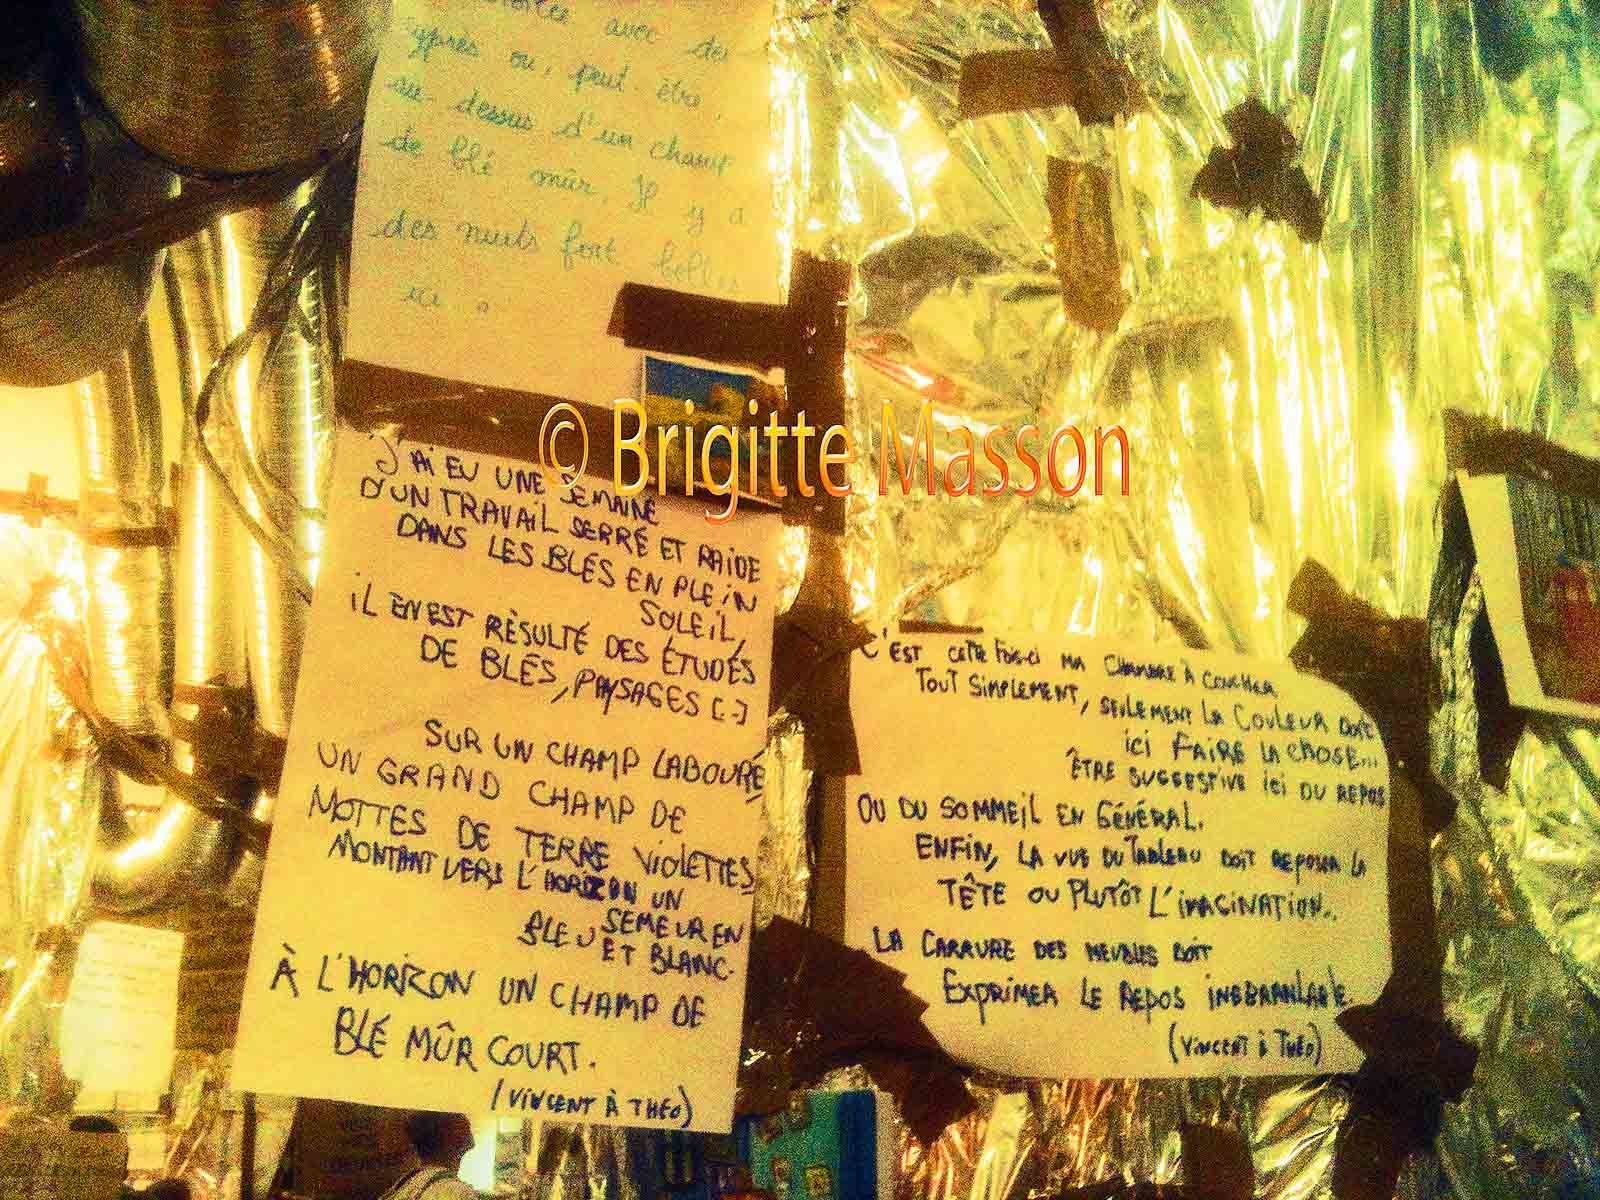 avec des
yprès ou, peut-être,
au dessus d'un champ
de blé mûr, il y a
des nuits fort belles
ici.
© Brigitte Masson
J'AI EU UNE SEMAINE
D'UN TRAVAIL SERRÉ ET RAIDE
DANS LES BLÉS EN PLEIN
SOLEIL,
IL EN EST RÉSULTÉ DES ÉTUDES
DE BLÉS, PAYSAGES [..]
SUR UN CHAMP LABOURÉ,
UN GRAND CHAMP DE
MOTTES DE TERRE VIOLETTES
MONTANT VERS L'HORIZON UN
SEMEUR EN
BLEU ET BLANC.
À L'HORIZON UN CHAMP DE
BLÉ MÛR COURT.
(VINCENT À THÉO)
C'EST CETTE FOIS-CI MA CHAMBRE À COUCHER
TOUT SIMPLEMENT, SEULEMENT LA COULEUR DOIT
ICI FAIRE LA CHOSE...
ÊTRE SUGGESTIVE ICI DU REPOS
OU DU SOMMEIL EN GÉNÉRAL.
ENFIN, LA VUE DU TABLEAU DOIT REPOSER LA
TÊTE OU PLUTÔT L'IMAGINATION..
LA CARRURE DES MEUBLES DOIT
EXPRIMER LE REPOS INEBRANLABLE.
(VINCENT À THÉO)